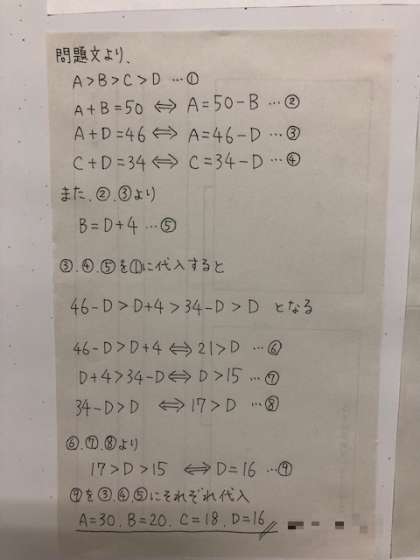 問題文より、
A>B>C>D …①
A+B=50 ⇔ A=50-B …②
A+D=46 ⇔ A=46-D …③
C+D=34 ⇔ C=34-D …④
また、②.③より
B=D+4 …⑤
③.④.⑤を①に代入すると
46-D>D+4>34-D>D となる
46-D>D+4 ⇔ 21>D …⑥
D+4>34-D ⇔ D>15 …⑦
34-D>D ⇔ 17>D …⑧
⑥.⑦.⑧より
17>D>15 ⇔ D=16 …⑨
⑨を③.④.⑤にそれぞれ代入
A=30.B=20.C=18.D=16